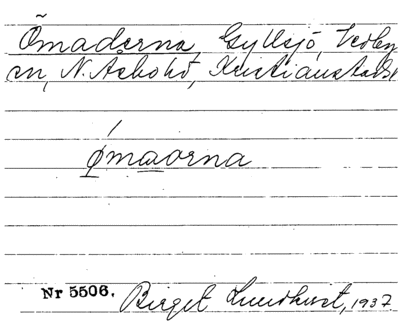 Ömaderna, Gyllsjö, Vedby
sn, N. Åsbohd, Kristianstads l
ǿmaorna
Nr 5506. Birget Lundkvist, 1937